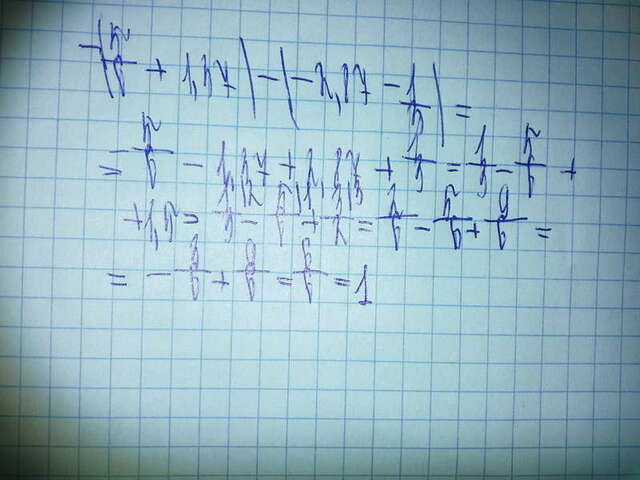 -(5/6 + 1,37) - (-2,87 - 1/3) =
= -5/6 - 1,37 + 2,87 + 1/3 = 1/3 - 5/6 +
+ 1,5 = 1/3 - 5/6 + 3/2 = 2/6 - 5/6 + 9/6 =
= - 3/6 + 9/6 = 6/6 = 1